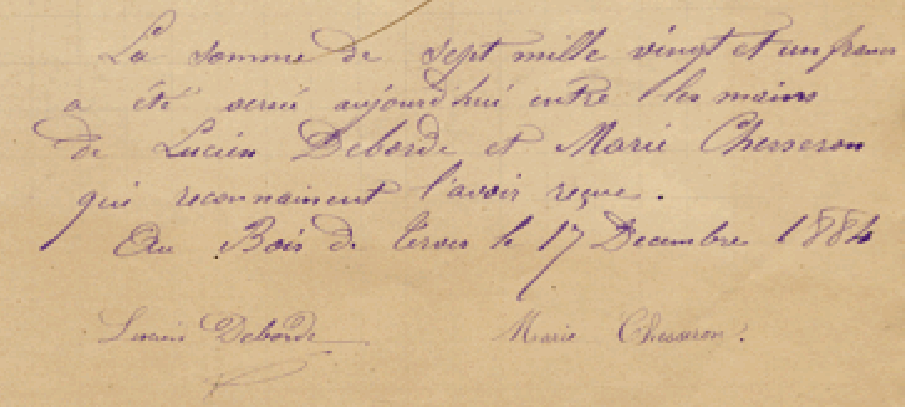 La somme de sept mille vingt et un francs
a été remis aujourd'hui entre les mains
de Lucien Deborde et Marie Chesseron
qui reconnaissent l'avoir reçue.
Au Bois de le 17 Decembre 1884
Lucien Deborde Marie Chesseron.